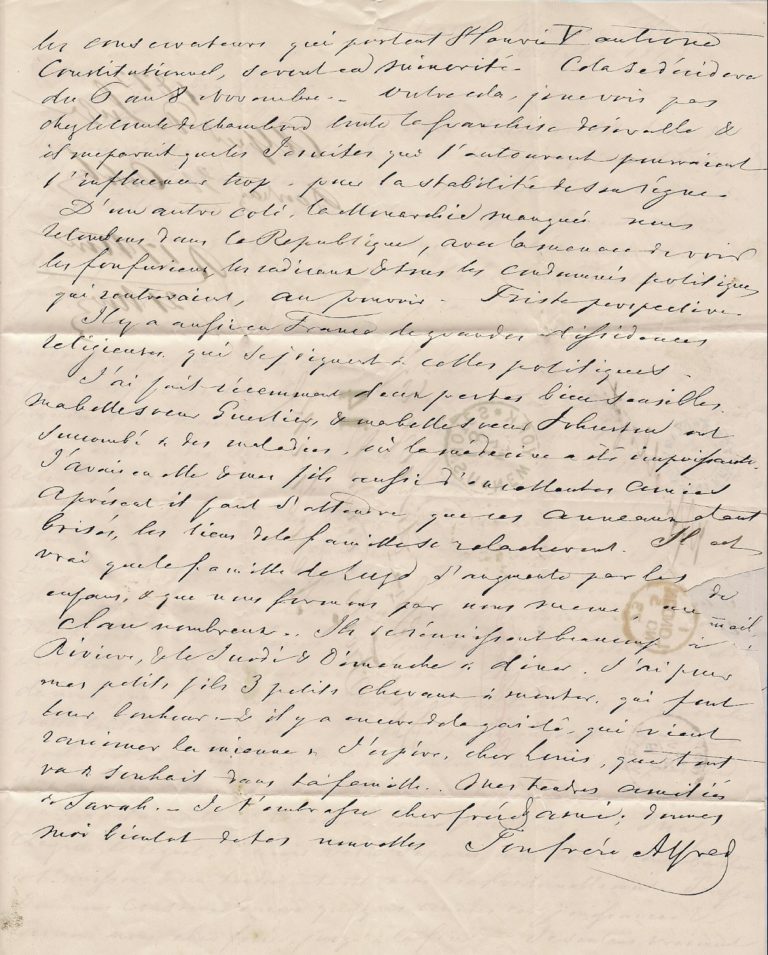 les conservateurs qui portent Henri V au trone
Constitutionnel, seront en minorité - Cela se décidera
du 5 au 8 Novembre - Outre cela, je ne vois pas
chez le Comte de Chambord toute la franchise &
il me parait que les Jesuites qui l'entourent pourraient
l'influencer trop - pour la stabilité de son règne -
D'un autre coté, la Monarchie manquée nous
retombons dans la Republique, avec la menace de voir
les les radicaux & tous les condamnés politiques
qui rentreraient, au pouvoir - Triste perspective -
Il y a aussi en France de grandes dissidences
religieuses qui se joignent à celles politiques -
J'ai fait récemment deux pertes bien sensibles.
ma belle soeur Guestier, & ma belle soeur Johnston ont
succombé à des maladies, où la médecine a été impuissante.
J'avais en elle & mes fils aussi d'excellentes amies
aprésent il faut s'attendre que ces anneaux étant
brisés, les liens de la famille se relacheront. Il est
vrai que la famille de Luze s'augmente par les
enfans, & que nous formons par nous memes, un
clan nombreux - Ils se réunissent beaucoup à
Riviere, & le Jeudi & Dimanche à diner. J'ai pour
mes petits fils 3 petits chevaux à monter, qui font
leur bonheur - & il y a encore de la gaieté, qui vient
ranimer la mienne - J'espère, cher Louis, que tout
va à souhait dans ta famille - mes tendres amitiés
à Sarah - Je t'embrasse cher frère & ami; donnes
moi bientot de tes nouvelles Ton frère Alfred